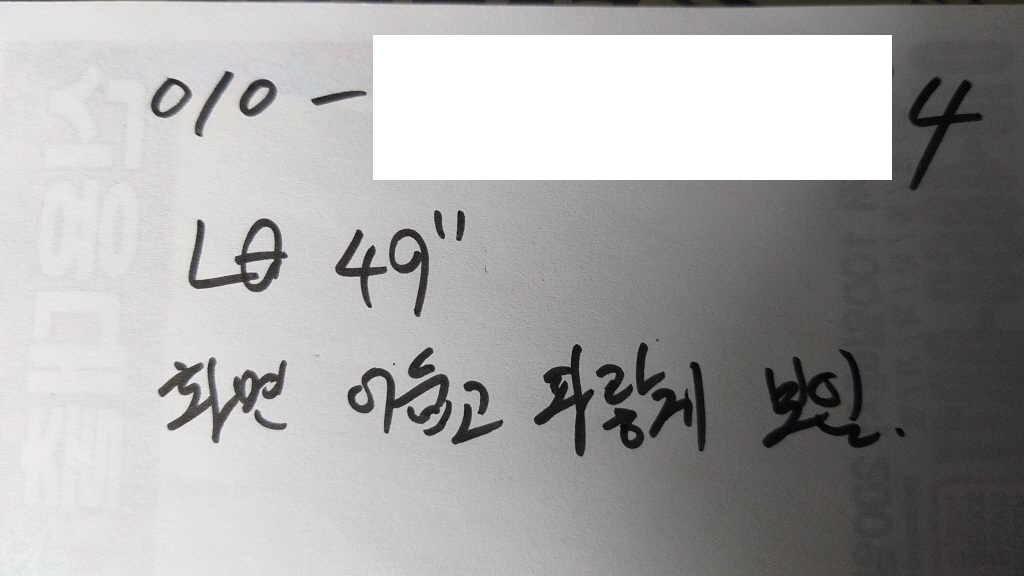 010 - 4
LG 49"
화면 어둡고 파랗게 보임.